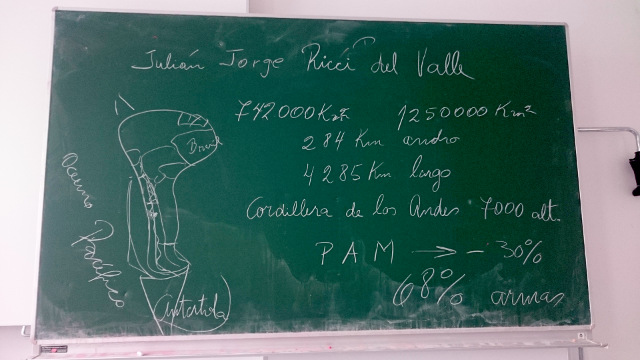 Julián Jorge Ricci del Valle
742000 Km² 1250000 Km²
284 Km ancho
4285 Km largo
Cordillera de los Andes 7000 alt.
P A M → - 30%
68% armas
Brasil
Oceano Pacífico
Antartida